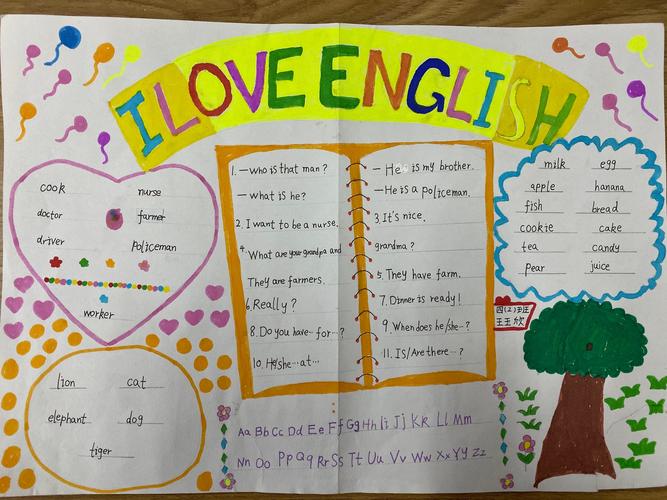 I LOVE ENGLISH
cook nurse
doctor farmer
driver Policeman
worker
lion cat
elephant dog
tiger
1. — who is that man?
— what is he?
2. I want to be a nurse.
4. What are your grandpa and
They are farmers.
6. Really?
8. Do you have… for…?
10. He/she…at…
— He is my brother.
— He is a policeman.
3. It's nice.
grandma?
5. They have farm.
7. Dinner is ready!
9. When does he/she…?
11. IS/Are there…?
milk egg
apple hanana
fish bread
cookie cake
tea candy
pear juice
四(2)班
王玉欣
Aa Bb Cc Dd Ee Ff Gg Hh Ii Jj Kk Ll Mm
Nn Oo Pp Qq Rr Ss Tt Uu Vv Ww Xx Yy Zz